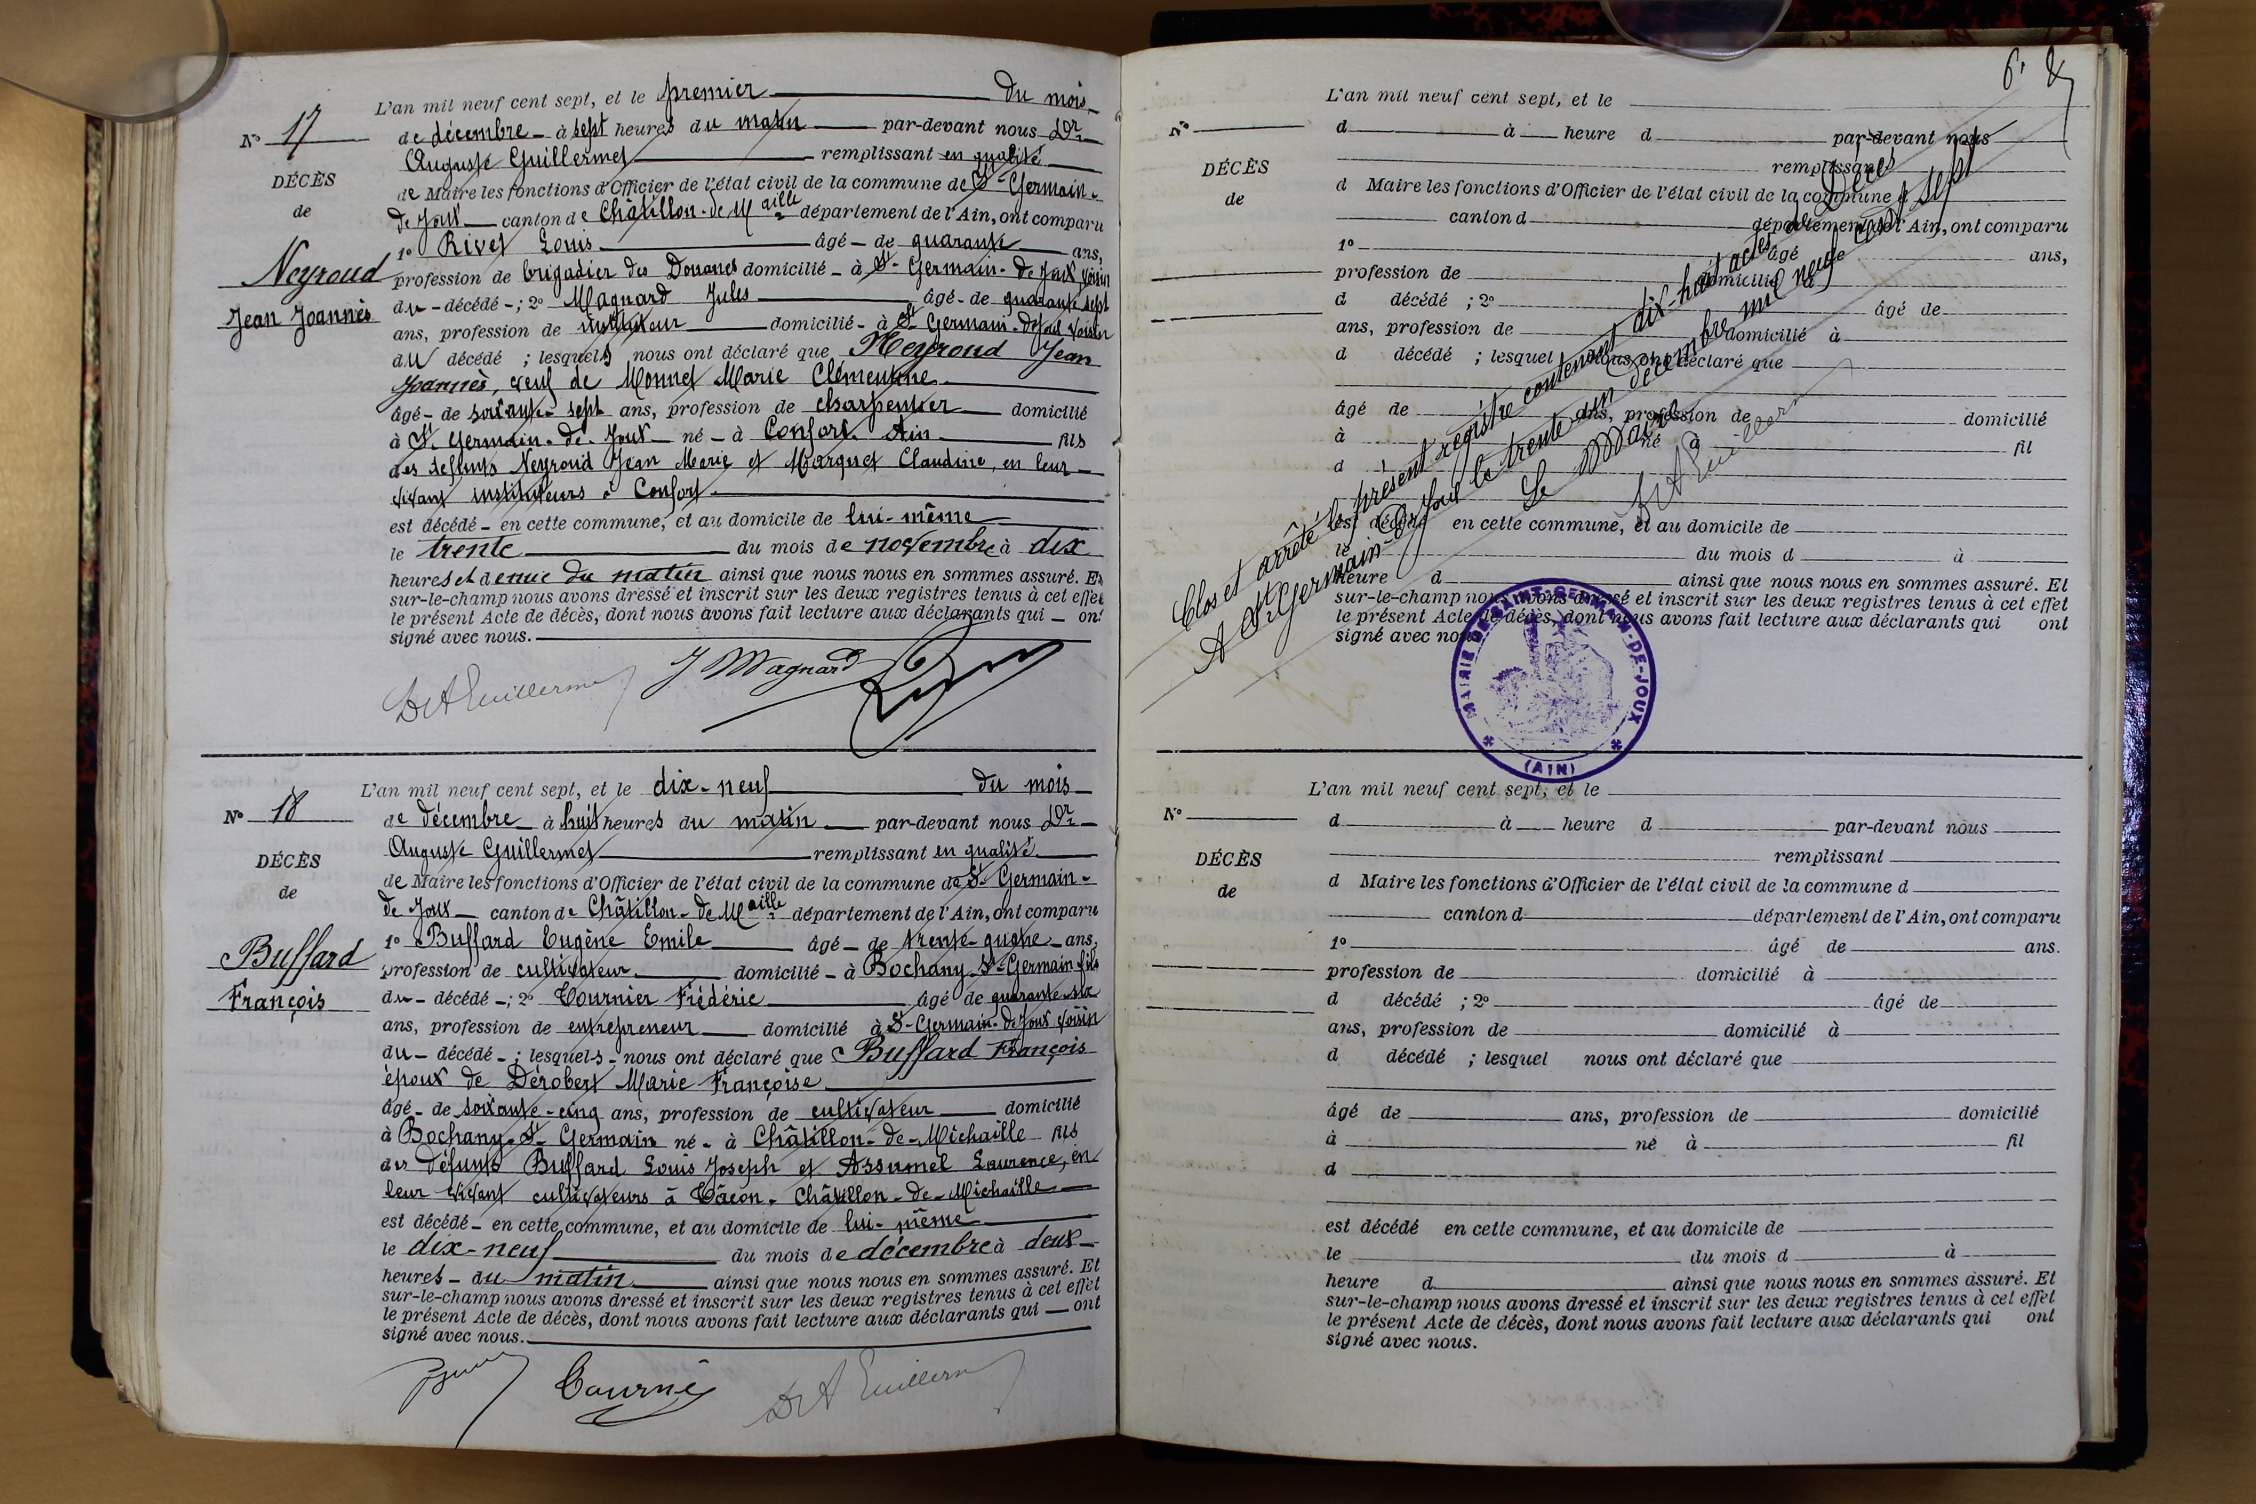 L'an mil neuf cent sept, et le premier du mois
N° 17
de décembre - à sept heures du matin par-devant nous Dr
Auguste Guillermet remplissant en qualité
DÉCÈS
de Maire les fonctions d'Officier de l'état civil de la commune de St-Germain-
de
de Joux canton de Châtillon-de-Maille département de l'Ain, ont comparu
1° Rivet Louis âgé - de quarante ans,
Neyroud
profession de brigadier des Douanes domicilié - à St-Germain-de Joux, voisin
Jean Joannès
du - décédé - ; 2° Magnard Jules âgé - de quarante sept
ans, profession de instituteur domicilié - à St Germain-de Joux voisin
du décédé ; lesquels nous ont déclaré que Neyroud Jean
Joannès, veuf de Monnet Marie Clémentine
âgé - de soixante-sept ans, profession de charpentier domicilié
à St Germain-de-Joux né - à Confort. Ain fils
des deffunts Neyroud Jean Marie et Marquet Claudine, en leur
vivant instituteurs à Confort
est décédé - en cette commune, et au domicile de lui-même
le trente du mois de novembre à dix
heures et demie du matin ainsi que nous nous en sommes assuré. Et
sur-le-champ nous avons dressé et inscrit sur les deux registres tenus à cet effet
le présent Acte de décès, dont nous avons fait lecture aux déclarants qui - ont
signé avec nous.
Dr A Guillermet J Magnard
L'an mil neuf cent sept, et le dix-neuf du mois
N° 18
de décembre à huit heures du matin par-devant nous Dr
Auguste Guillermet remplissant en qualité
DÉCÈS
de Maire les fonctions d'Officier de l'état civil de la commune de St-Germain-
de
de Joux canton de Châtillon-de-Maille département de l'Ain, ont comparu
1° Buffard Eugène Emile âgé - de trente-quatre ans,
Buffard
profession de cultivateur domicilié - à Bochany-St-Germain fils
François
du - décédé - ; 2° Tournier Frédéric âgé de quarante-six
ans, profession de entrepreneur domicilié à St-Germain-de Joux voisin
du - décédé - ; lesquels - nous ont déclaré que Buffard François
époux de Dérobert Marie Françoise
âgé - de soixante-cinq ans, profession de cultivateur domicilié
à Bochany-St-Germain né - à Châtillon-de-Michaille fils
des défunts Buffard Louis Joseph et Assumel Laurence, en
leur vivant cultivateurs à Tâcon-Châtillon-de-Michaille
est décédé - en cette commune, et au domicile de lui-même
le dix-neuf du mois de décembre à deux
heures - du matin ainsi que nous nous en sommes assuré. Et
sur-le-champ nous avons dressé et inscrit sur les deux registres tenus à cet effet
le présent Acte de décès, dont nous avons fait lecture aux déclarants qui - ont
signé avec nous.
Dr A Guillerm
L'an mil neuf cent sept, et le
N°
d à heure d par-devant nous
remplissant
DÉCÈS
d Maire les fonctions d'Officier de l'état civil de la commune d
de
canton d département de l'Ain, ont comparu
1° âgé ans,
profession de domicilié à
d décédé ; 2° âgé de
ans, profession de domicilié à
d décédé ; lesquel nous ont déclaré que
âgé de ans, profession de domicilié
à né à fil
d
est décédé en cette commune, et au domicile de
le du mois d à
heure d ainsi que nous nous en sommes assuré. Et
sur-le-champ nous avons dressé et inscrit sur les deux registres tenus à cet effet
le présent Acte de décès, dont nous avons fait lecture aux déclarants qui ont
signé avec nous
Clos et arrêté le présent registre contenant dix-huit actes de Décès
A St Germain-de Joux le trente un décembre mil neuf cent sept
Le Maire
Dr A Guillerm
MAIRIE DE SAINT-GERMAIN-DE-JOUX
(AIN)
L'an mil neuf cent sept, et le
N°
d à heure d par-devant nous
remplissant
DÉCÈS
d Maire les fonctions d'Officier de l'état civil de la commune d
de
canton d département de l'Ain, ont comparu
1° âgé de ans.
profession de domicilié à
d décédé ; 2° âgé de
ans, profession de domicilié à
d décédé ; lesquel nous ont déclaré que
âgé de ans, profession de domicilié
à né à fil
d
est décédé en cette commune, et au domicile de
le du mois d à
heure d ainsi que nous nous en sommes assuré. Et
sur-le-champ nous avons dressé et inscrit sur les deux registres tenus à cet effet
le présent Acte de décès, dont nous avons fait lecture aux déclarants qui ont
signé avec nous.